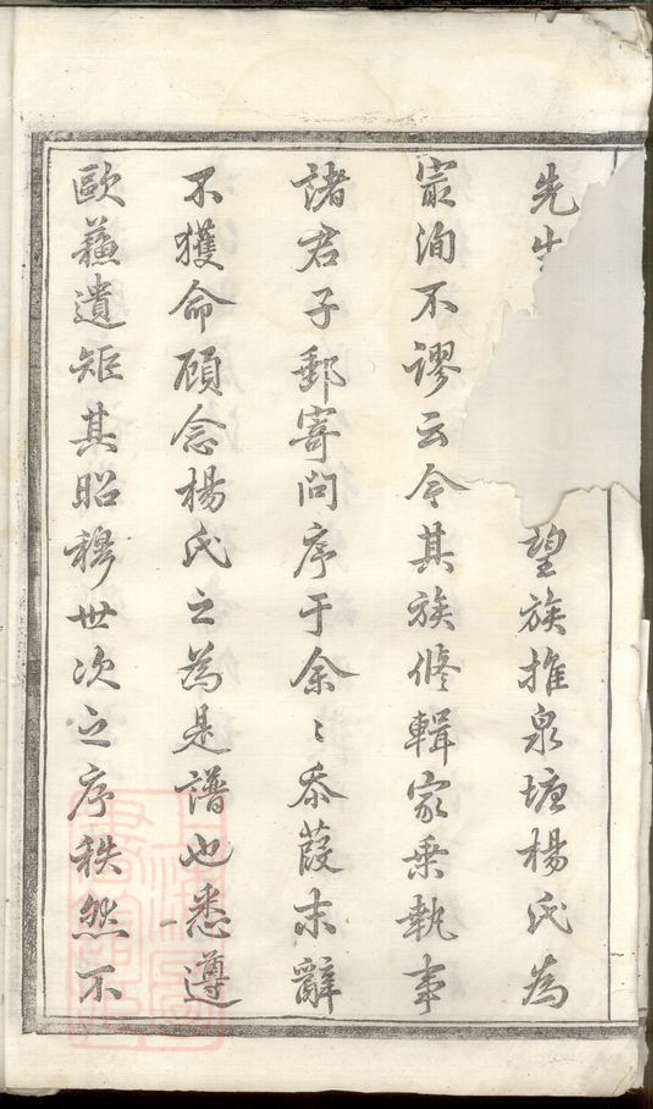 先生望族推泉塘楊氏為
寂洵不謬云今其族修輯家乗執事
諸君子郵寄問序于余〻忝葭末辭
不獲命顧念楊氏之為是譜也悉遵
歐蘓遺矩其昭穆世次之序秩然不
上海圖書館藏